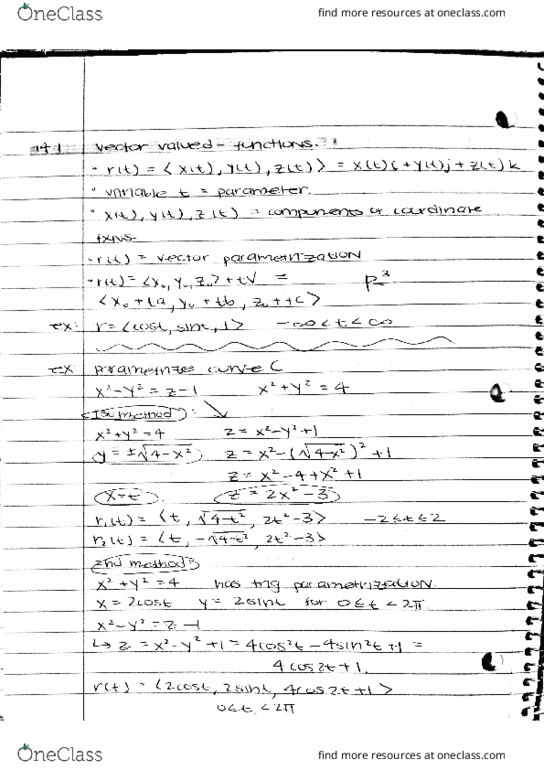 OneClass find more resources at oneclass.com
14.1 vector valued - functions.
· r(t) = ⟨x(t), y(t), z(t)⟩ = x(t)i + y(t)j + z(t)k
· variable t = parameter.
· x(t), y(t), z(t) = components or coordinate
fxns.
· r(t) = vector parametrization
· r(t) = ⟨x₀, y₀, z₀⟩ + tV = R³
⟨x₀ + ta, y₀ + tb, z₀ + tc⟩
ex: r = ⟨cost, sint, 1⟩ -∞ < t < ∞
ex parametrize curve C
x² - y² = z - 1 x² + y² = 4
1st method:
x² + y² = 4 z = x² - y² + 1
y = ±√4-x² z = x² - (√4-x²)² + 1
z = x² - 4 + x² + 1
x = t z = 2x² - 3
r₁(t) = ⟨t, √4-t², 2t² - 3⟩ -2 ≤ t ≤ 2
r₂(t) = ⟨t, -√4-t², 2t² - 3⟩
2nd method
x² + y² = 4 has trig parametrization
x = 2cost y = 2sint for 0 ≤ t < 2π
x² - y² = z - 1
↳ z = x² - y² + 1 = 4cos²t - 4sin²t + 1 =
4cos2t + 1.
r(t) = ⟨2cost, 2sint, 4cos2t + 1⟩
0 ≤ t < 2π
OneClass find more resources at oneclass.com